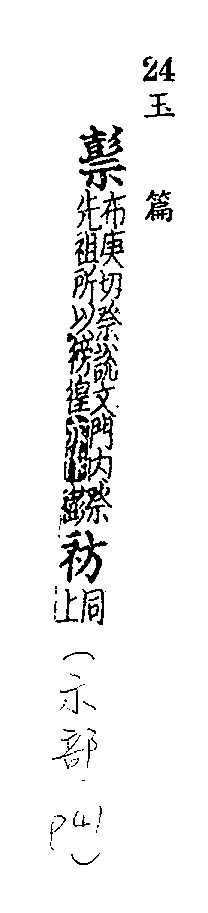 24
玉篇
𥛱
布庚切祭說文門内祭
先祖所以徬徨
祊
同
上
(示部. P41)